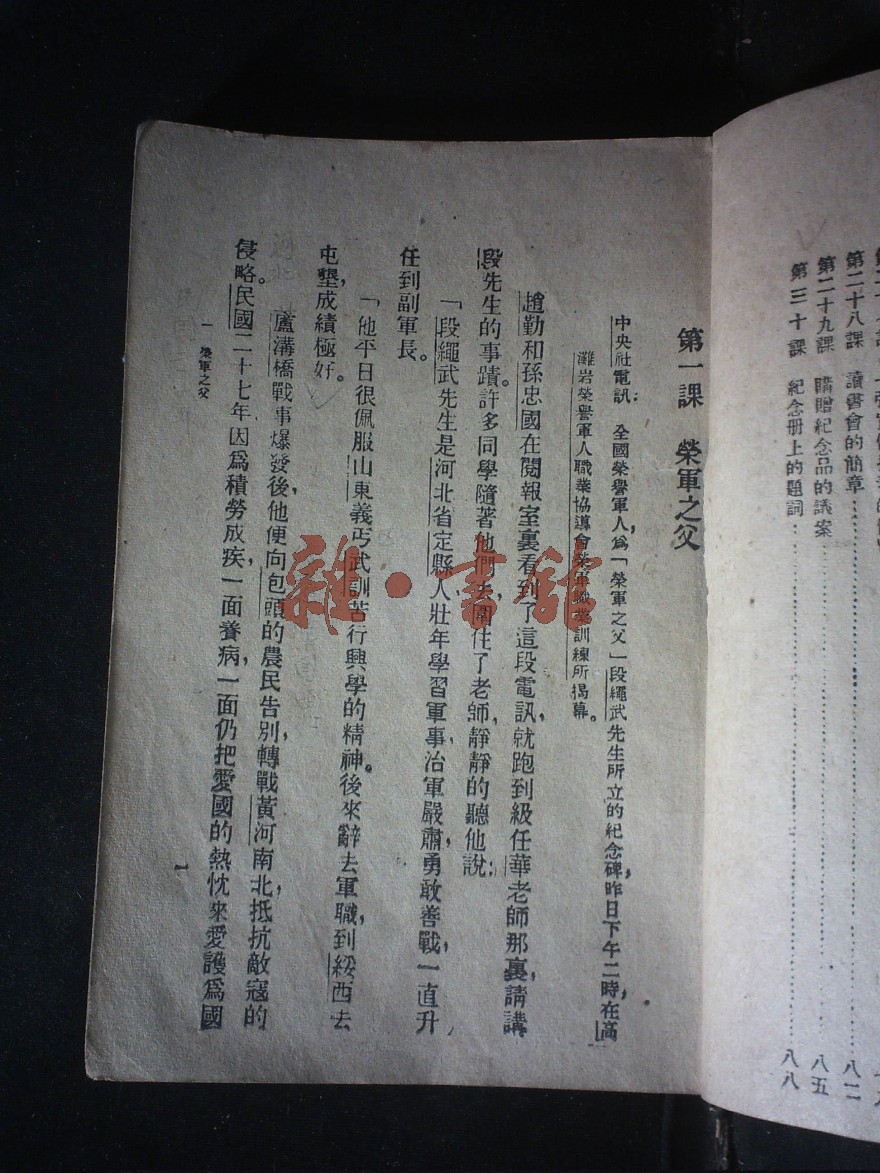 第二十八課　讀書會的簡章……八二
第二十九課　購贈紀念品的議案……八五
第三十課　紀念册上的題詞……八八
第一課　榮軍之父
中央社電訊：全國榮譽軍人，爲「榮軍之父」段繩武先生所立的紀念碑，昨日下午二時，在高
灘岩榮譽軍人職業協導會榮軍職業訓練所揭幕。
趙勤和孫忠國在閱報室裏看到了這段電訊，就跑到級任華老師那裏，請講
段先生的事蹟。許多同學隨著他們去，圍住了老師，靜靜的聽他說：
「段繩武先生是河北省定縣人，壯年學習軍事，治軍嚴肅，勇敢善戰，一直升
任到副軍長。
「他平日很佩服山東義丐武訓苦行興學的精神。後來辭去軍職，到綏西去
屯墾，成績極好。
蘆溝橋戰事爆發後，他便向包頭的農民告別，轉戰黃河南北，抵抗敵寇的
侵略。民國二十七年，因爲積勞成疾，一面養病，一面仍把愛國的熱忱來愛護爲國
一　榮軍之父
一
雜·書館